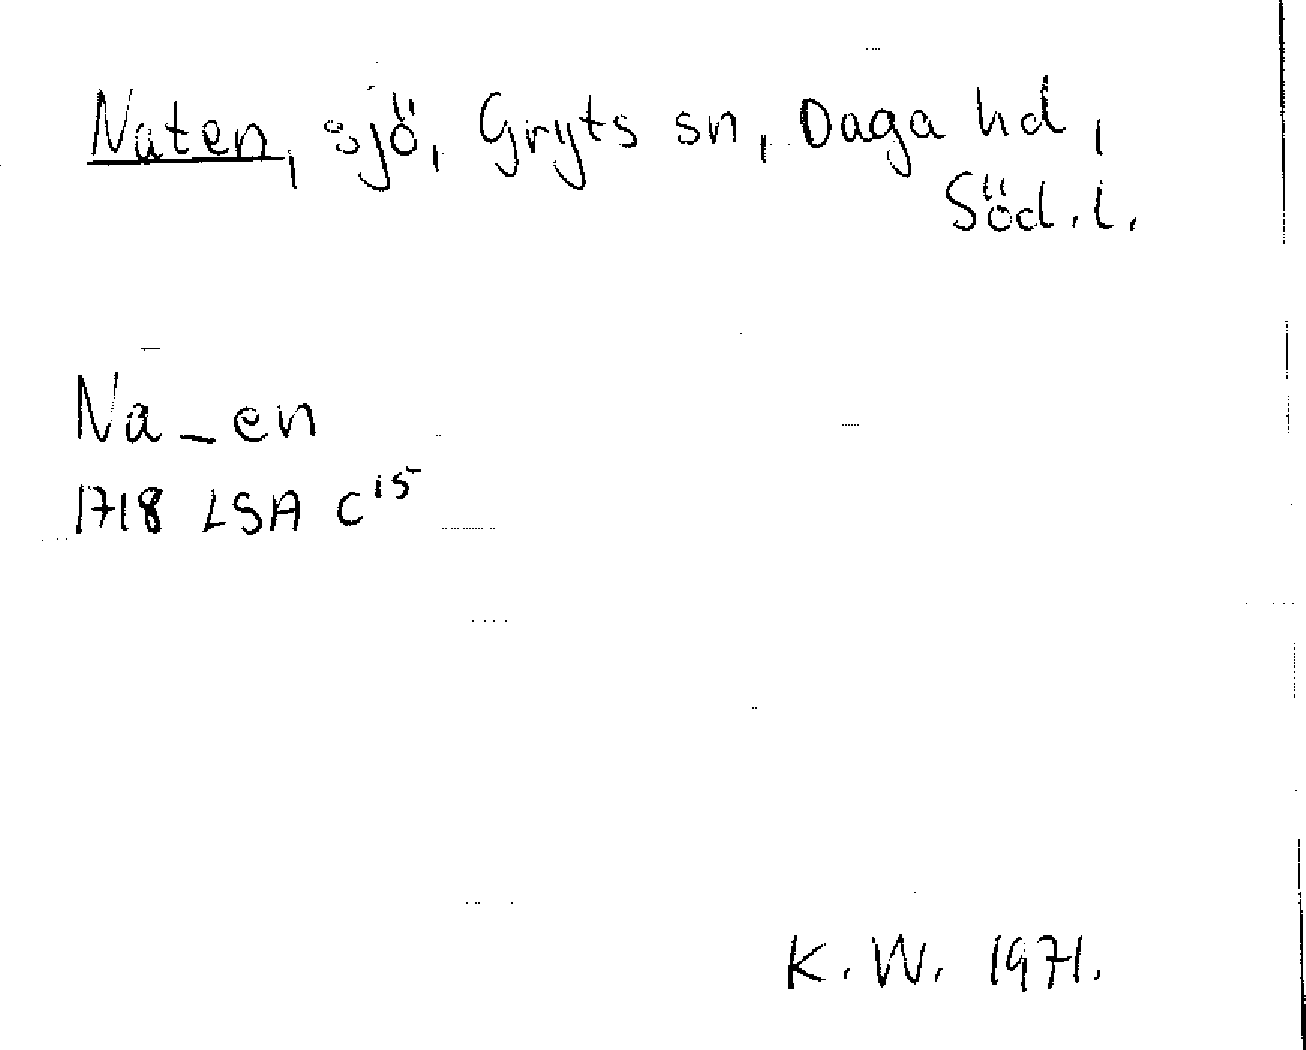 Naten, sjö, Gryts sn, Daga hd,
Söd. l.
Na_en
1718 LSA C15
K. W. 1971.